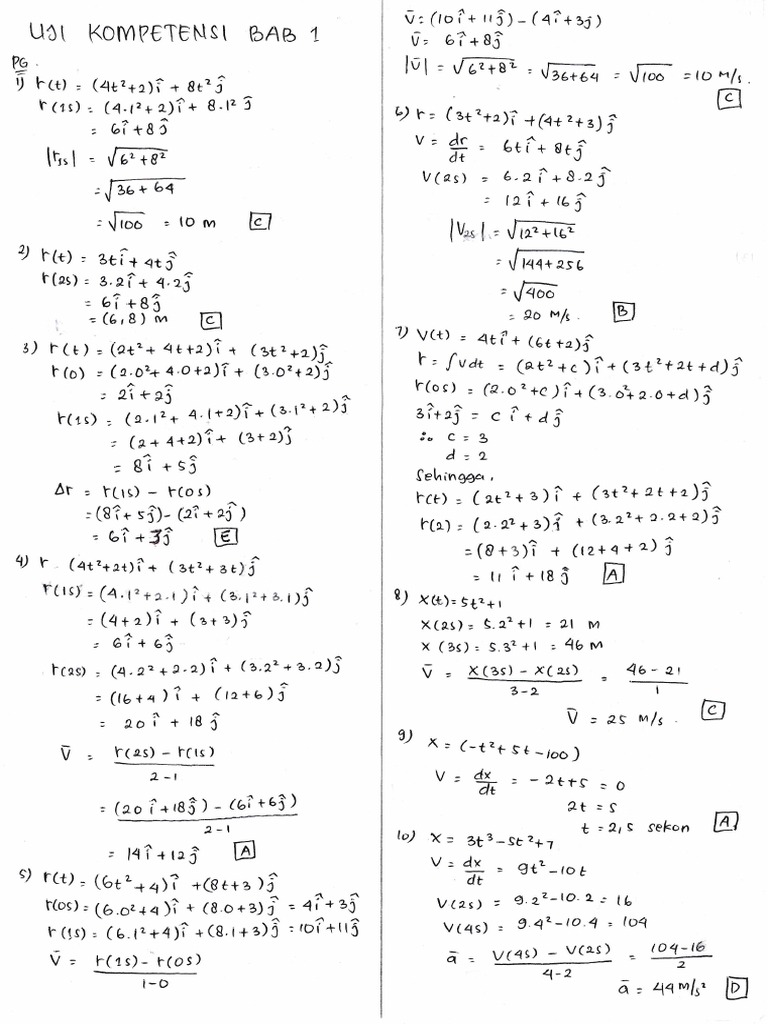 UJI KOMPETENSI BAB 1
PG.
1) r(t) = (4t²+2)î + 8t²ĵ
r(1s) = (4.1²+2)î + 8.1²ĵ
= 6î+8ĵ
|r₁ₛ| = √6²+8²
= √36+64
= √100 = 10 m C
2) r(t) = 3tî+4tĵ
r(2s) = 3.2î + 4.2ĵ
= 6î+8ĵ
= (6,8) m C
3) r(t) = (2t²+4t+2)î + (3t²+2)ĵ
r(0) = (2.0²+4.0+2)î + (3.0²+2)ĵ
= 2î+2ĵ
r(1s) = (2.1²+ 4.1+2)î+(3.1²+2)ĵ
= (2+4+2)î + (3+2)ĵ
= 8î+5ĵ
Δr = r(1s) - r(0s)
=(8î+5ĵ)-(2î+2ĵ)
= 6î+3ĵ E
4) r (4t²+2t)î + (3t²+3t)ĵ
r(1s) = (4.1²+2.1)î + (3.1²+3.1)ĵ
= (4+2)î + (3+3)ĵ
= 6î+6ĵ
r(2s) = (4.2²+2.2)î + (3.2²+3.2)ĵ
= (16+4)î + (12+6)ĵ
= 20î + 18ĵ
v̄ = r(2s) - r(1s)
2-1
= (20î+18ĵ) - (6î+6ĵ)
2-1
= 14î+12ĵ A
5) r(t) = (6t²+4)î +(8t+3)ĵ
r(0s) = (6.0²+4)î + (8.0+3)ĵ = 4î+3ĵ
r(1s) = (6.1²+4)î+(8.1+3)ĵ=10î+11ĵ
v̄ = r(1s) - r(0s)
1-0
v̄ = (10î+11ĵ) - (4î+3ĵ)
v̄ = 6î+8ĵ
|v̄| = √6²+8² = √36+64 = √100 = 10 m/s.
C
6) r = (3t²+2)î +(4t²+3)ĵ
v = dr = 6tî + 8tĵ
dt
v(2s) = 6.2î+8.2ĵ
= 12î+16ĵ
|v₂ₛ| = √12²+16²
= √144+256
= √400
= 20 m/s. B
7) v(t) = 4tî+(6t+2)ĵ
r = ∫vdt = (2t²+c)î+(3t²+2t+d)ĵ
r(0s) = (2.0²+c)î+(3.0²+2.0+d)ĵ
3î+2ĵ = cî+dĵ
∴ c = 3
d = 2
Sehingga,
r(t) = (2t²+3)î + (3t²+2t+2)ĵ
r(2) = (2.2²+3)î + (3.2²+2.2+2)ĵ
= (8+3)î + (12+4+2)ĵ
= 11î+18ĵ A
8) x(t) = 5t²+1
x(2s) = 5.2²+1 = 21 m
x(3s) = 5.3²+1 = 46 m
v̄ = x(3s) - x(2s) = 46-21
3-2 1
v̄ = 25 m/s. C
9) x = (-t²+5t-100)
v = dx = -2t+5 = 0
dt
2t = 5
t = 2,5 sekon A
10) x = 3t³-5t²+7
v = dx = 9t²-10t
dt
v(2s) = 9.2²-10.2 = 16
v(4s) = 9.4²-10.4 = 104
ā = v(4s) - v(2s) = 104-16
4-2 2
ā = 44 m/s² D